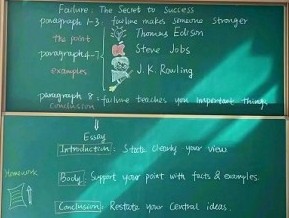 Failure: The Secret to Success
paragraph 1-3: failure makes someone stronger
the point
Thomas Edison
paragraph 4-7
Steve Jobs
examples
J.K. Rowling
paragraph 8: failure teaches you important things
conclusion
Essay
Introduction: State clearly your view
Homework
Body: Support your point with facts & examples.
Conclusion: Restate your central ideas.